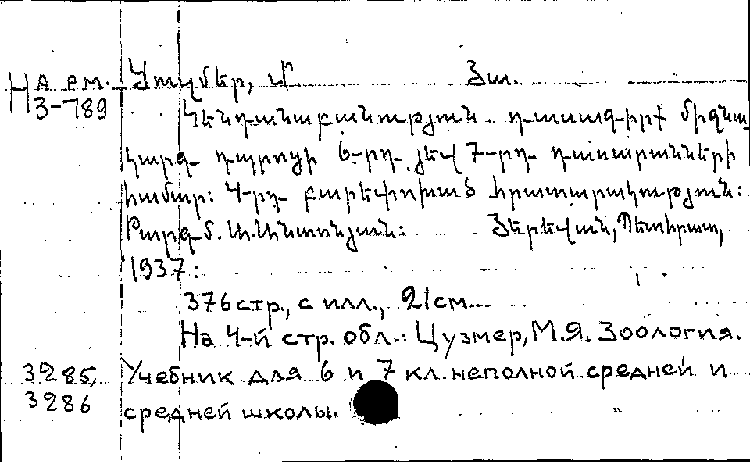 На арм. Ցուզմեր, Մ. Յա.
З-789
Կենդանաբանություն. դասագիրք միջնա
կարգ դպրոցի 6-րդ յեվ 7-րդ դասարանների
համար: 4-րդ բարեփոխած հրատարակություն:
Թարգմ. Ա. Անտոնյան: Յերեվան, Պետհրատ,
1937:
376 стр., с илл., 21 см.
На 4-й стр. обл.: Цузмер, М.Я. Зоология.
3285, Учебник для 6 и 7 кл. неполной средней и
3286 средней школы.